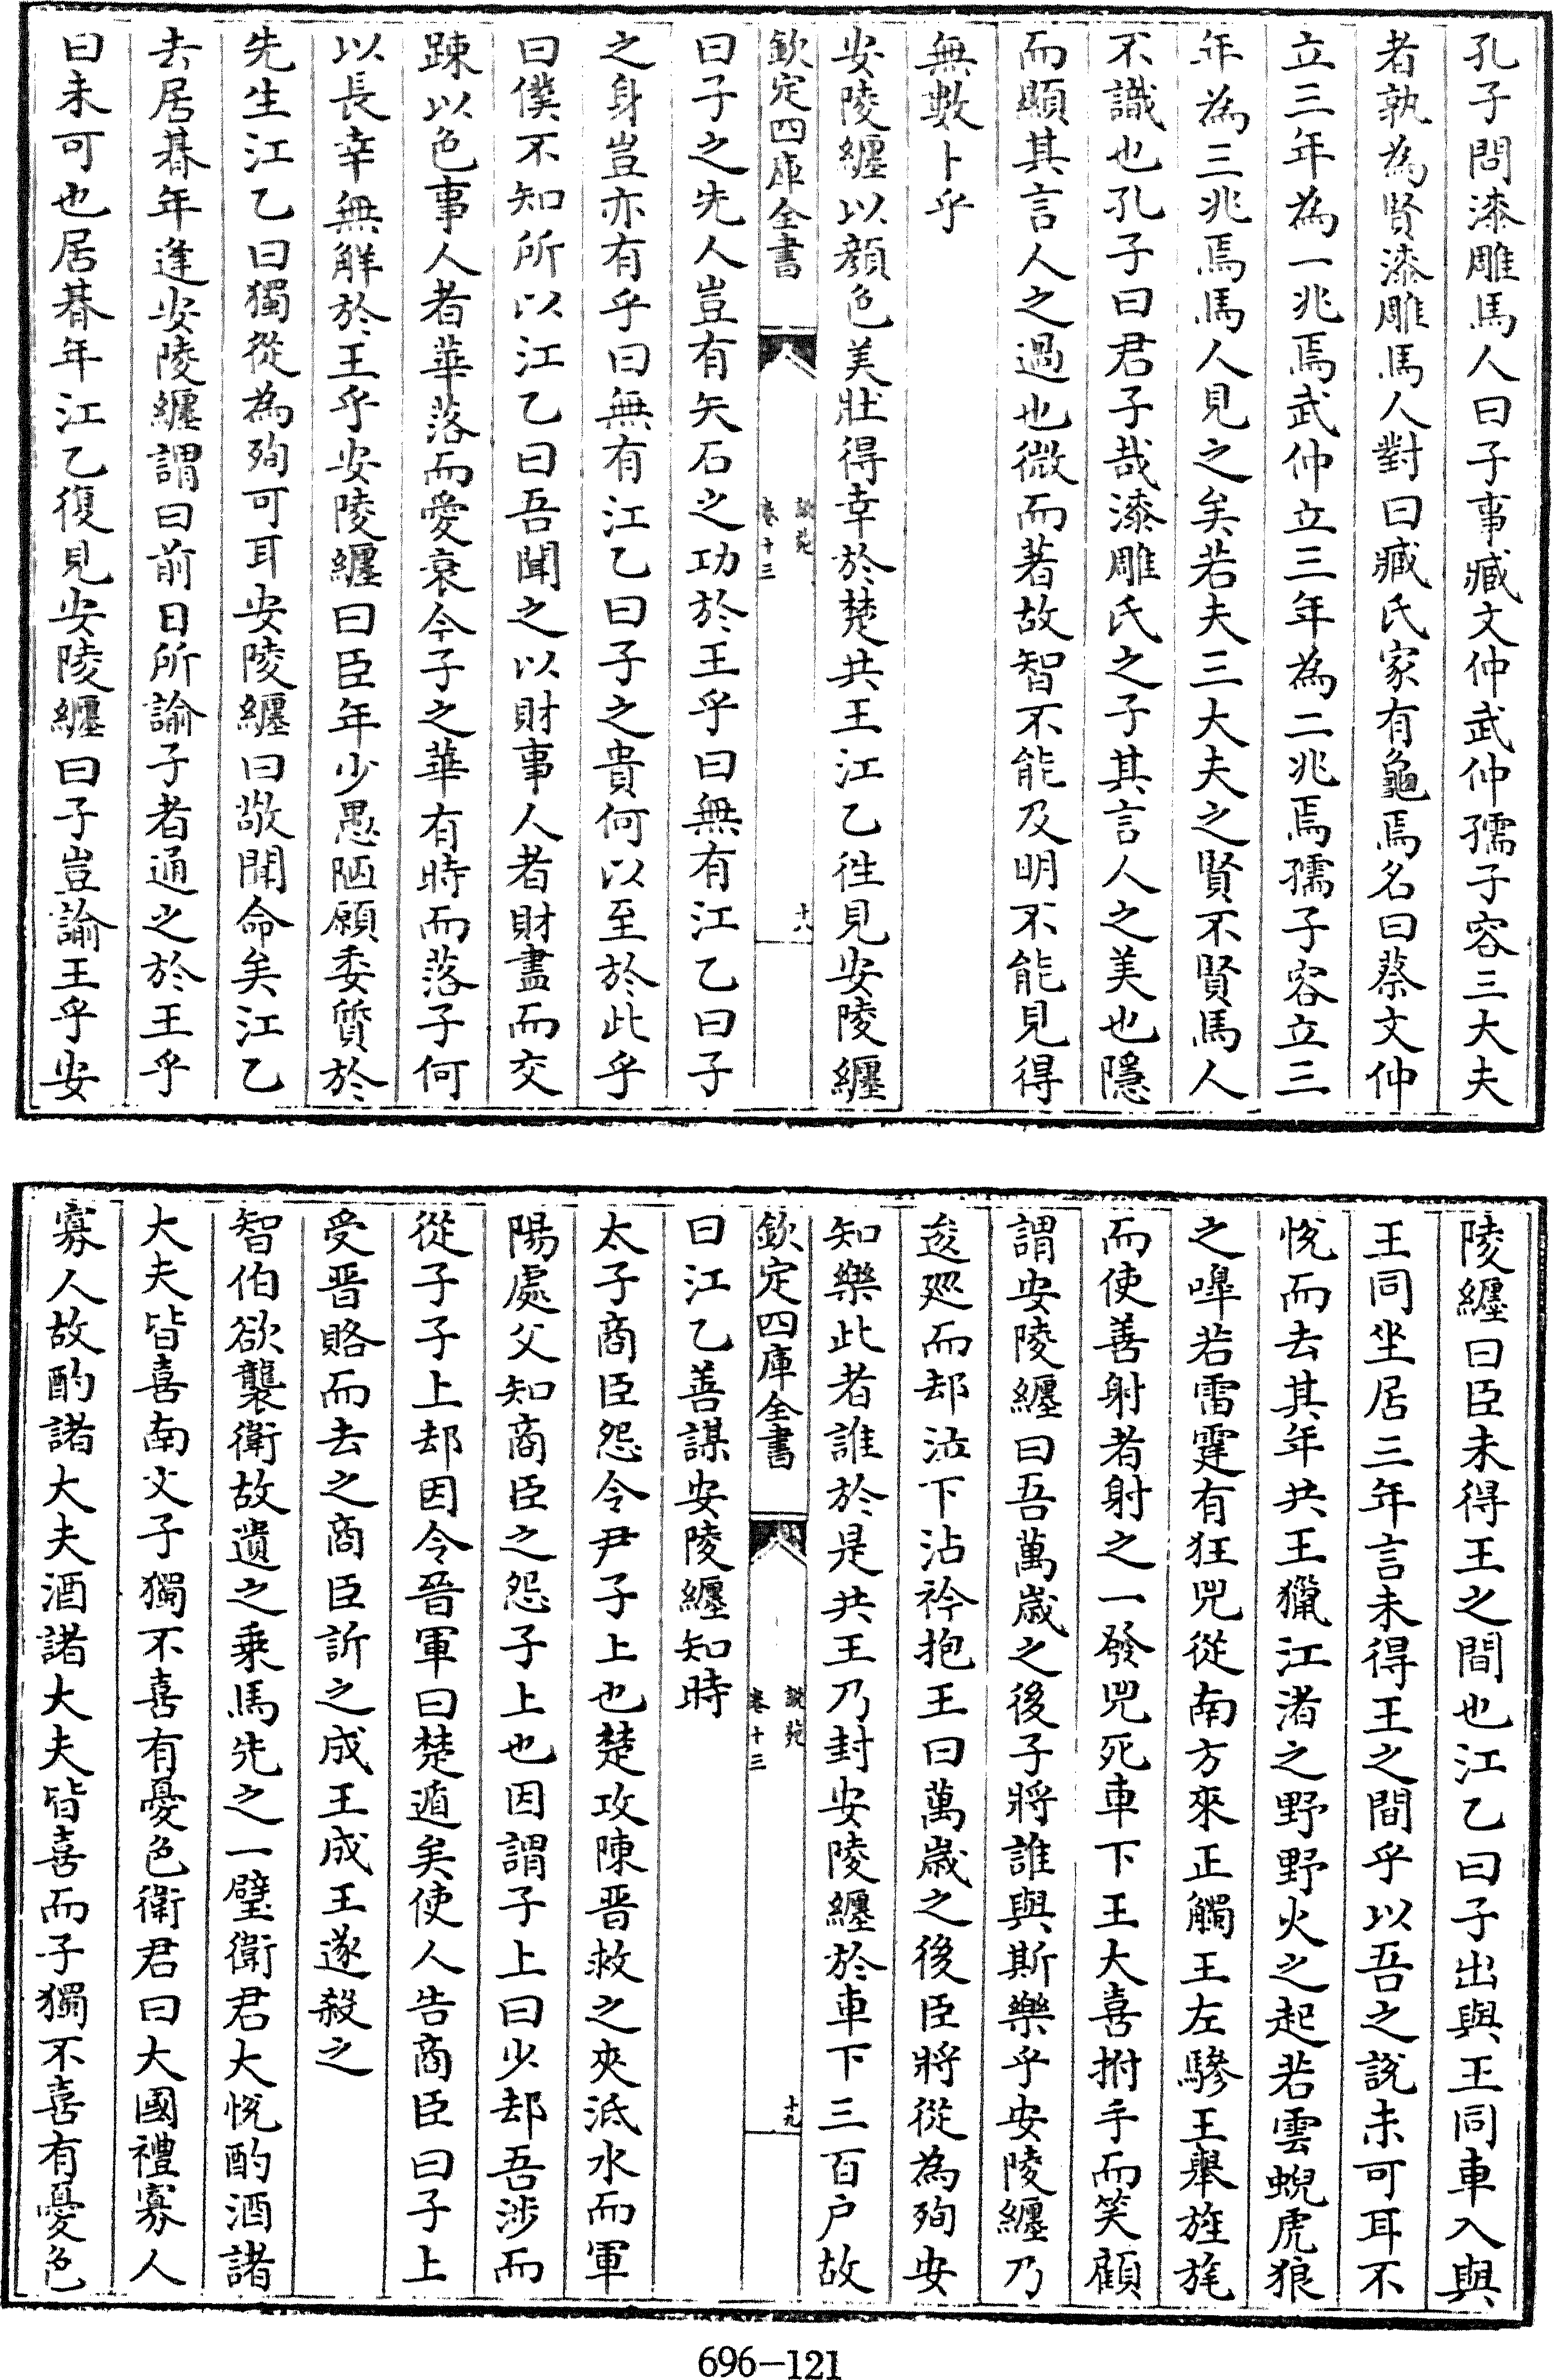 孔子問漆雕馬人曰子事臧文仲武仲孺子容三大夫
者孰為賢漆雕馬人對曰臧氏家有龜焉名曰蔡文仲
立三年為一兆焉武仲立三年為二兆焉孺子容立三
年為三兆焉馬人見之矣若夫三大夫之賢不賢馬人
不識也孔子曰君子哉漆雕氏之子其言人之美也隱
而顯其言人之過也微而著故智不能及明不能見得
無數卜乎
安陵纏以顔色美壯得幸於楚共王江乙徃見安陵纏
欽定四庫全書
說苑
卷十三
十八
曰子之先人豈有矢石之功於王乎曰無有江乙曰子
之身豈亦有乎曰無有江乙曰子之貴何以至於此乎
曰僕不知所以江乙曰吾聞之以財事人者財盡而交
踈以色事人者華落而愛衰今子之華有時而落子何
以長幸無解於王乎安陵纏曰臣年少愚陋願委質於
先生江乙曰獨從為殉可耳安陵纏曰敬聞命矣江乙
去居朞年逢安陵纏謂曰前日所諭子者通之於王乎
曰未可也居朞年江乙復見安陵纏曰子豈諭王乎安
陵纏曰臣未得王之間也江乙曰子出與王同車入與
王同坐居三年言未得王之間乎以吾之說未可耳不
悅而去其年共王獵江渚之野野火之起若雲蜺虎狼
之嘷若雷霆有狂兕從南方來正觸王左驂王舉旌旄
而使善射者射之一發兕死車下王大喜拊手而笑顧
謂安陵纏曰吾萬歲之後子將誰與斯樂乎安陵纏乃
逡廵而却泣下沾衿抱王曰萬歲之後臣將從為殉安
知樂此者誰於是共王乃封安陵纏於車下三百户故
欽定四庫全書
說苑
卷十三
十九
曰江乙善謀安陵纏知時
太子商臣怨令尹子上也楚攻陳晋救之夾泜水而軍
陽處父知商臣之怨子上也因謂子上曰少却吾涉而
從子子上却因令晉軍曰楚遁矣使人告商臣曰子上
受晋賂而去之商臣訴之成王成王遂殺之
智伯欲襲衛故遺之乘馬先之一璧衛君大悅酌酒諸
大夫皆喜南文子獨不喜有憂色衛君曰大國禮寡人
寡人故酌諸大夫酒諸大夫皆喜而子獨不喜有憂色
696-121